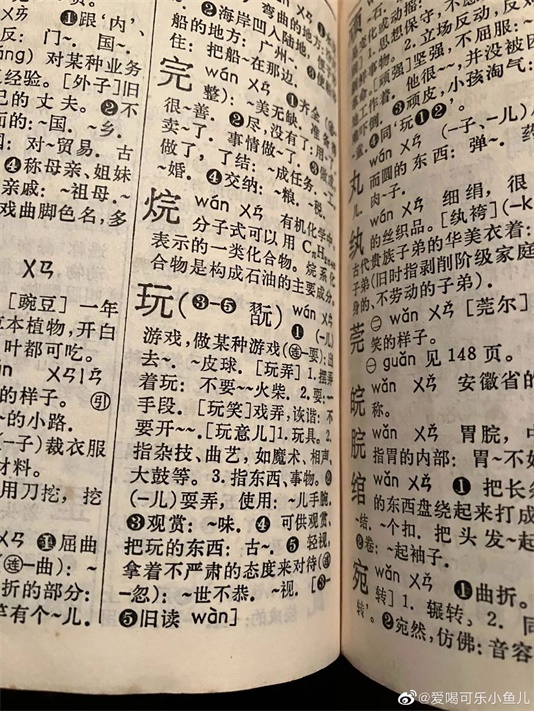 ❶跟‘内’、
反: 门~. 国~.
对某种业务
经验. [外子]旧
己的丈夫. ❷不
的: ~国. ~乡.
国: 对~贸易. 古
❹称母亲、姐妹
亲戚: ~祖母. ~
戏曲脚色名, 多
ㄨㄢ
[豌豆] 一年
本植物, 开白
叶都可吃.
ㄨㄢㄐㄧㄢ
的样子. ㊞
~的小路.
(—子)裁衣服
材料.
用刀挖, 挖
❶屈曲
(㊣—曲):
折的部分:
竿有个~儿.
弯曲的地方.
❸海岸凹入陆地、
船的地方: 广州~.
住: 把船~在那边.
完 wán ㄨㄢˊ ❶齐全(㊣—
整): ~美无缺. 准备得
很~善. ❷尽, 没有了: 用~了.
卖~了. 事情做~了. ❸做成,
做了, 了结: ~成任务. ~工.
~婚. ❹交纳: ~粮. ~税.
烷 wán ㄨㄢˊ 有机化学中,
分子式可以用 CnH2n+2
表示的一类化合物. 烷系化
合物是构成石油的主要成分.
玩(❸—❺ 翫) wán ㄨㄢˊ
❶(—儿)
游戏, 做某种游戏(㊣—耍): 出
去~. ~皮球. [玩弄] 1. 摆弄
着玩: 不要~~火柴. 2. 耍: ~~
手段. [玩笑]戏弄, 诙谐: 不
要开~~. [玩意儿]1. 玩具. 2.
指杂技、曲艺, 如魔术、相声、
大鼓等. 3. 指东西、事物. ❷
(—儿)耍弄, 使用: ~儿手腕.
❸观赏: ~味. ❹ 可供观赏、
把玩的东西: 古~. ❺ 轻视,
拿着不严肃的态度来对待(㊣
—忽): ~世不恭. ~视. [❸—
❺旧读 wàn]
顽
思想保守, 不愿
2. 立场反动, 反
事物. [顽强]坚强, 不屈服: ~
工作着. 他很~~, 并没被困
倒. ❸顽皮, 小孩淘气:
童. ❹同‘玩❶❷’.
丸 wán ㄨㄢˊ (—子、—儿)
而圆的东西: 弹~. 药
肉~子.
纨 wán ㄨㄢˊ 细绢, 很
的丝织品. [纨袴](—k
古代贵族子弟的华美衣着:
子弟(旧时指剥削阶级家庭
身的、不劳动的子弟).
莞 ㊀ wǎn ㄨㄢˇ [莞尔]
笑的样子.
㊁ guǎn 见 148 页.
皖 wǎn ㄨㄢˇ 安徽省的
称.
脘 wǎn ㄨㄢˇ 胃脘, 中
指胃的内部: 胃~不
绾 wǎn ㄨㄢˇ ❶把长
的东西盘绕起来打成
结: ~个扣. 把头发~起
❷卷: ~起袖子.
宛 wǎn ㄨㄢˇ ❶曲折. [
转] 1. 辗转. 2. 同
转’. ❷宛然, 仿佛: 音容
@爱喝可乐小鱼儿